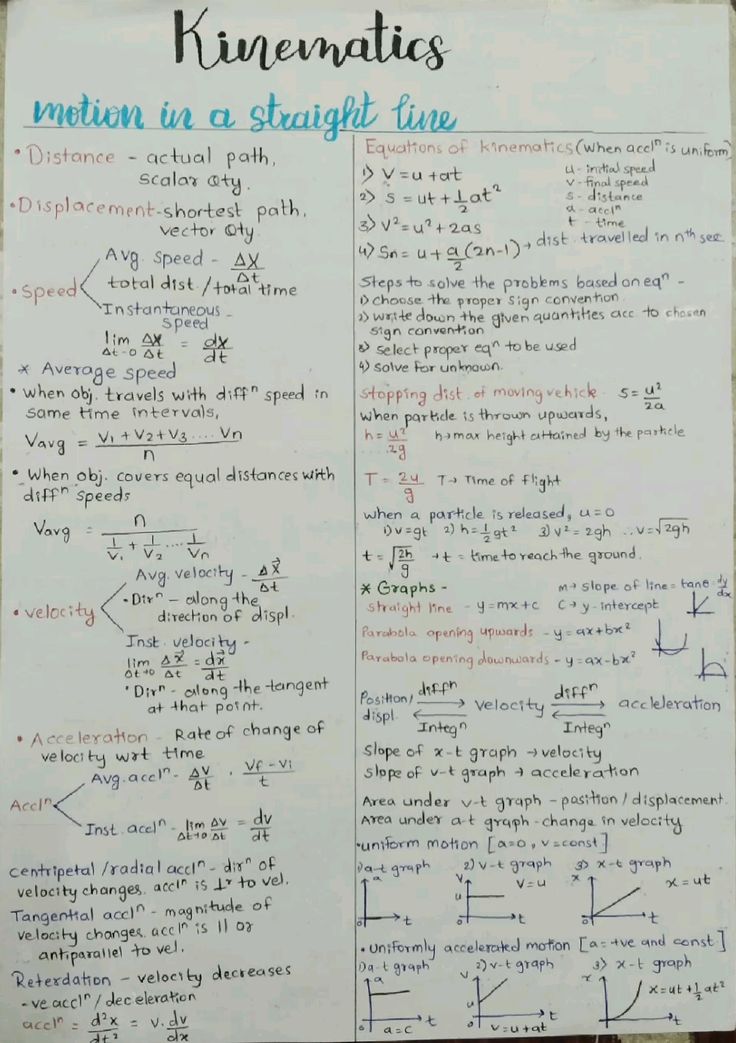 Kinematics
motion in a straight line
• Distance - actual path,
scalar Qty.
• Displacement - shortest path,
vector Qty.
Avg. speed - Δx/Δt
total dist / total time
• Speed
Instantaneous -
speed
lim Δt→0 Δx/Δt = dx/dt
* Average speed
• When obj. travels with diffⁿ speed in
same time intervals,
Vavg = V₁ + V₂ + V₃ .... Vn / n
• When obj. covers equal distances with
diffⁿ speeds
Vavg = n / 1/V₁ + 1/V₂ .... 1/Vn
Avg. velocity - Δx⃗/Δt
• Dirⁿ - along the
direction of displ.
• velocity
Inst. velocity -
lim Δt→0 Δx⃗/Δt = dx⃗/dt
• Dirⁿ - along the tangent
at that point.
• Acceleration - Rate of change of
velocity wrt time
Avg. acclⁿ - Δv/Δt . Vf - Vi/t
Acclⁿ
Inst. acclⁿ - lim Δt→0 Δv/Δt = dv/dt
centripetal / radial acclⁿ - dirⁿ of
velocity changes. acclⁿ is ⊥r to vel.
Tangential acclⁿ - magnitude of
velocity changes. acclⁿ is || or
antiparallel to vel.
Reterdation - velocity decreases
-ve acclⁿ / deceleration
acclⁿ = d²x/dt² = v. dv/dx
Equations of kinematics (when acclⁿ is uniform)
1) V = u + at
2) s = ut + 1/2 at²
3) V² = u² + 2as
4) Sn = u + a/2 (2n-1) → dist. travelled in nth sec
u - initial speed
v - final speed
s - distance
a - acclⁿ
t - time
Steps to solve the problems based on eqⁿ -
1) choose the proper sign convention
2) write down the given quantities acc to chosen
sign convention
3) select proper eqⁿ to be used
4) solve for unknown.
Stopping dist. of moving vehicle. S = u²/2a
When particle is thrown upwards,
h = u²/2g h → max height attained by the particle
T = 2u/g T → Time of flight
when a particle is released, u = 0
1) v = gt 2) h = 1/2 gt² 3) v² = 2gh ∴ v = √2gh
t = √2h/g → t = time to reach the ground.
* Graphs - m → slope of line = tanθ dy/dx
straight line - y = mx + c C → y-intercept
Parabola opening upwards - y = ax + bx²
Parabola opening downwards - y = ax - bx²
Position/ displ. diffⁿ Integⁿ velocity diffⁿ Integⁿ accleleration
Slope of x-t graph → velocity
slope of v-t graph → acceleration
Area under v-t graph - position / displacement.
Area under a-t graph - change in velocity
• uniform motion [a=0, v=const]
1) a-t graph 2) v-t graph 3) x-t graph
a t
v t V = u
x t x = ut
• Uniformly accelerated motion [a = +ve and const]
1) a-t graph 2) v-t graph 3) x-t graph
a t a = c
v t v = u + at
x t x = ut + 1/2 at²